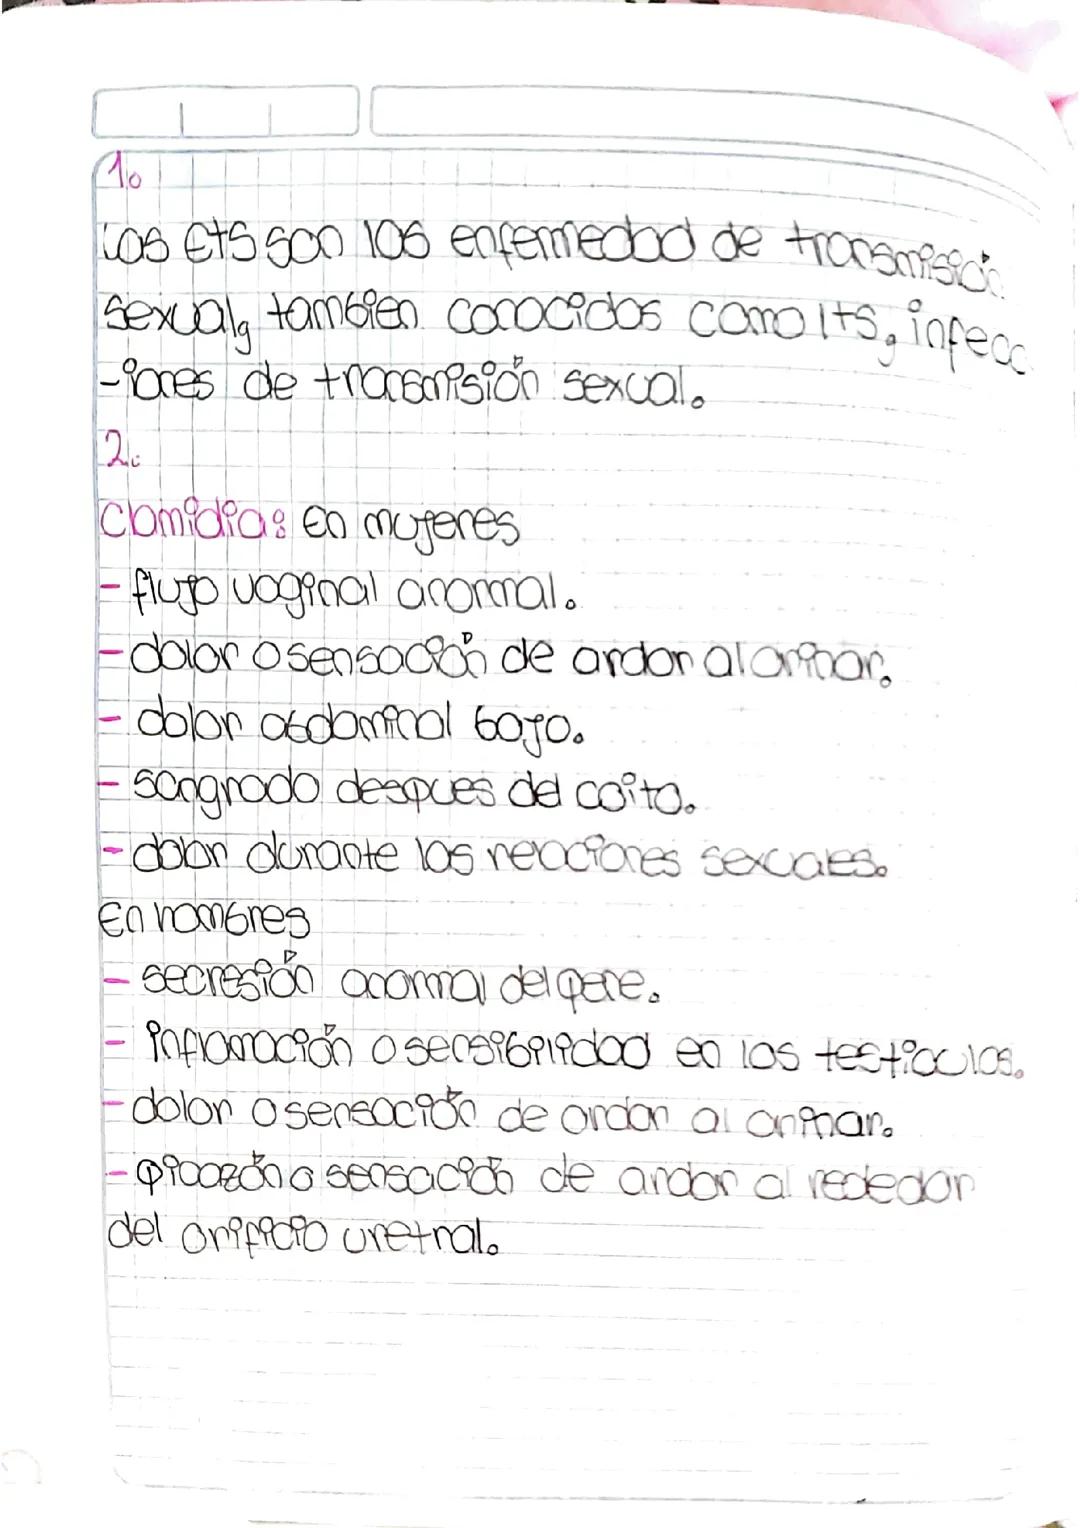 1.
Las Ets son las enfermedad de transmisión
sexual, tambien conocidas como Its, infecc
-iones de transmisión sexual.
2.
Clamidia: En mujeres
- flujo vaginal anormal.
- dolor o sensación de ardor al orinar.
- dolor abdominal bajo.
- sangrado despues del coito.
- dolor durante las reaciones sexuales.
En hombres
- secresión anormal del pene.
- inflamación o sensibilidad en los testiculos.
- dolor o sensación de ardor al orinar.
- picazón o sensación de ardor al rededor
del orificio uretral.